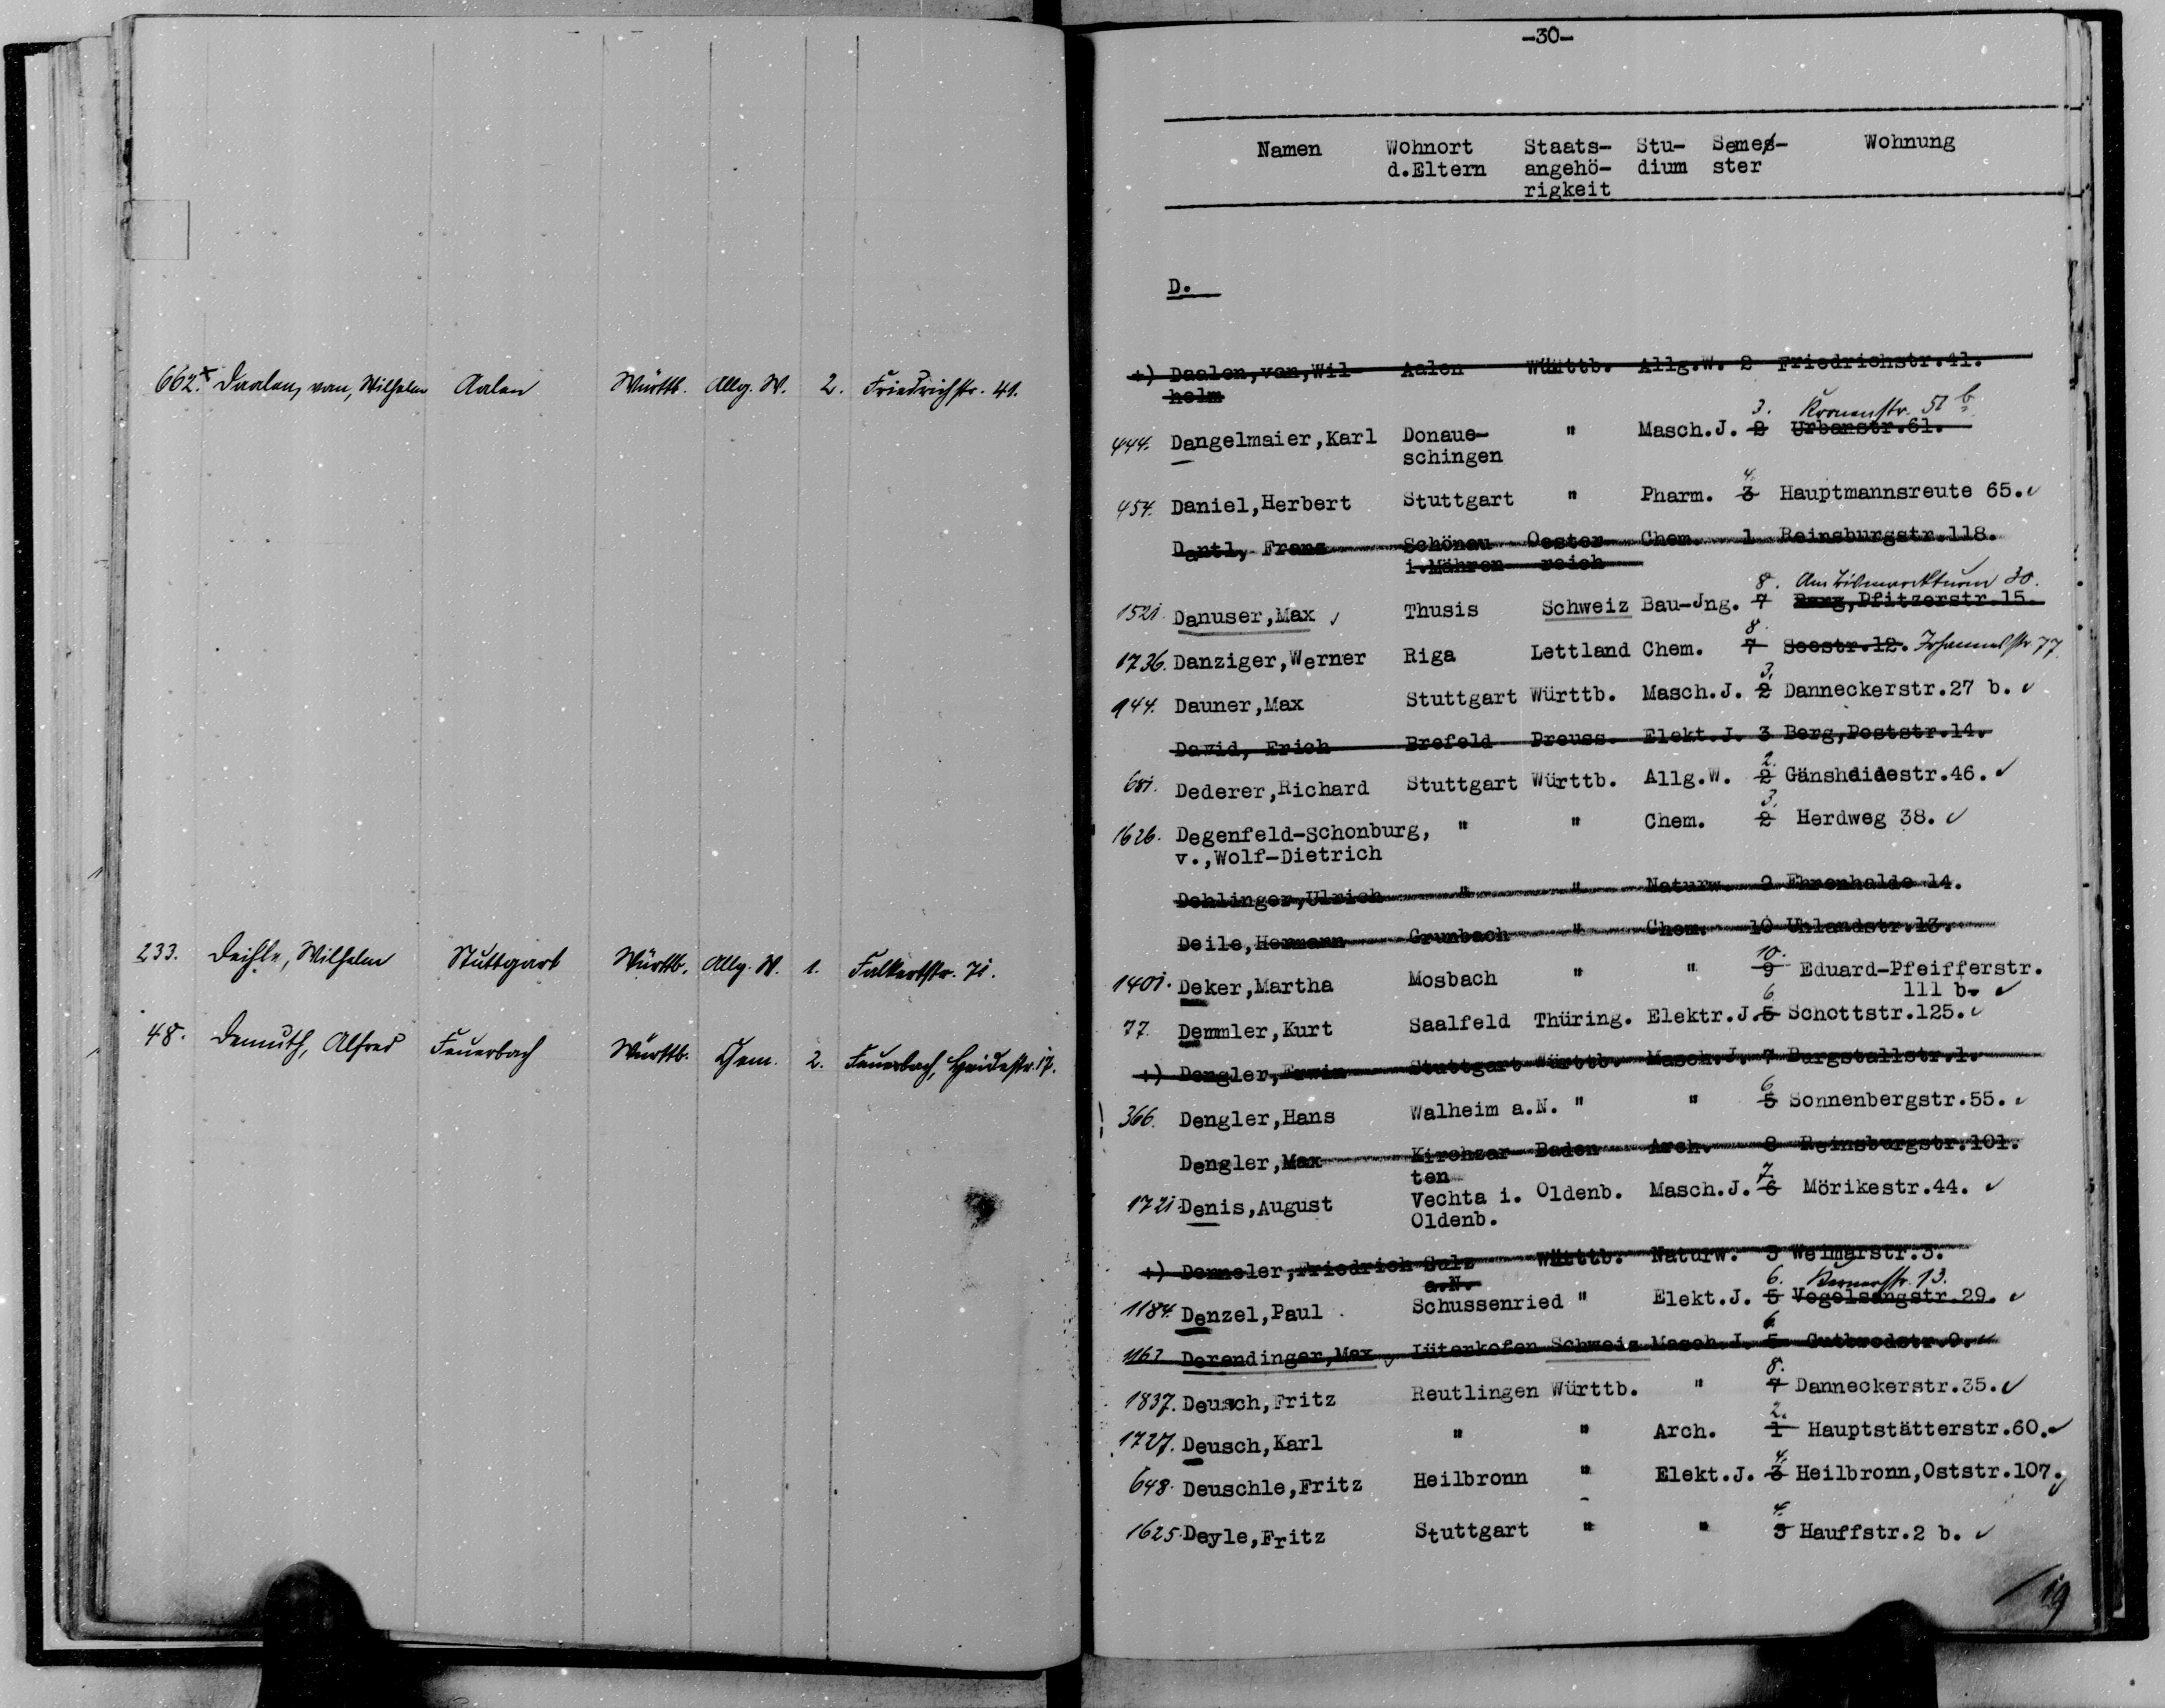 662.× Daalen, van, Wilhelm Aalen Württb. Allg. W. 2. Friedrichstr. 41.
233. Deihle, Wilhelm Stuttgart Württb. Allg. W. 1. Falkertstr. 71.
48. Demuth, Alfred Feuerbach Württb. Chem. 2. Feuerbach, Heidestr. 17.
-30-
Namen Wohnort Staats- Stu- Semes- Wohnung
d.Eltern angehö- dium ster
rigkeit
D.
+) Daalen,van,Wil- Aalen Württb. Allg.W. 2 Friedrichstr.41.
helm
3. Kronenstr. 51 b.
444. Dangelmaier,Karl Donaue- " Masch.J. 2 Urbanstr.61.
schingen
4.
454. Daniel,Herbert Stuttgart " Pharm. 3 Hauptmannsreute 65.✓
Dantl, Franz Schönau Oester- Chem. 1 Reinsburgstr.118.
i.Mähren reich
8. Am Bismarckturm 30.
1521. Danuser,Max ✓ Thusis Schweiz Bau-Jng. 7 Berg,Pfitzerstr.15.
8.
1736. Danziger,Werner Riga Lettland Chem. 7 Seestr.12. Johannesstr. 77.
3.
944. Dauner,Max Stuttgart Württb. Masch.J. 2 Danneckerstr.27 b. ✓
David, Erich Brefeld Preuss. Elekt.J. 3 Berg,Poststr.14.
2.
681. Dederer,Richard Stuttgart Württb. Allg.W. 2 Gänshdidestr.46. ✓
3.
1626. Degenfeld-Schonburg, " " Chem. 2 Herdweg 38. ✓
v.,Wolf-Dietrich
Dehlinger,Ulrich " " Naturw. 9 Ehrenhalde 14.
Deile,Hermann Grunbach " Chem. 10 Uhlandstr.13.
10.
1401. Deker,Martha Mosbach " " 9 Eduard-Pfeifferstr.
111 b. ✓
6.
77. Demmler,Kurt Saalfeld Thüring. Elektr.J. 5 Schottstr.125. ✓
+) Dengler,Erwin Stuttgart Württb. Masch.J. 7 Burgstallstr.1.
6
366. Dengler,Hans Walheim a.N. " " 5 Sonnenbergstr.55. ✓
Dengler,Max Kirchzar- Baden Arch. 8 Reinsburgstr.101.
ten
7
1721. Denis,August Vechta i. Oldenb. Masch.J. 6 Mörikestr.44. ✓
Oldenb.
+) Denneler,Friedrich Sulz Württb. Naturw. 3 Weimarstr.3.
a.N.
6. Kernerstr. 13.
1184. Denzel,Paul Schussenried " Elekt.J. 5 Vogelsangstr.29. ✓
6.
1163 Derendinger,Max ✓ Lüterkofen Schweiz Masch.J. 5 Gutbrodstr.9. ✓
8.
1837. Deusch,Fritz Reutlingen Württb. " 7 Danneckerstr.35. ✓
2.
1727. Deusch,Karl " " Arch. 1 Hauptstätterstr.60. ✓
4.
648. Deuschle,Fritz Heilbronn " Elekt.J. 3 Heilbronn,Oststr.107. ✓
4.
1625. Deyle,Fritz Stuttgart " " 3 Hauffstr.2 b. ✓
19